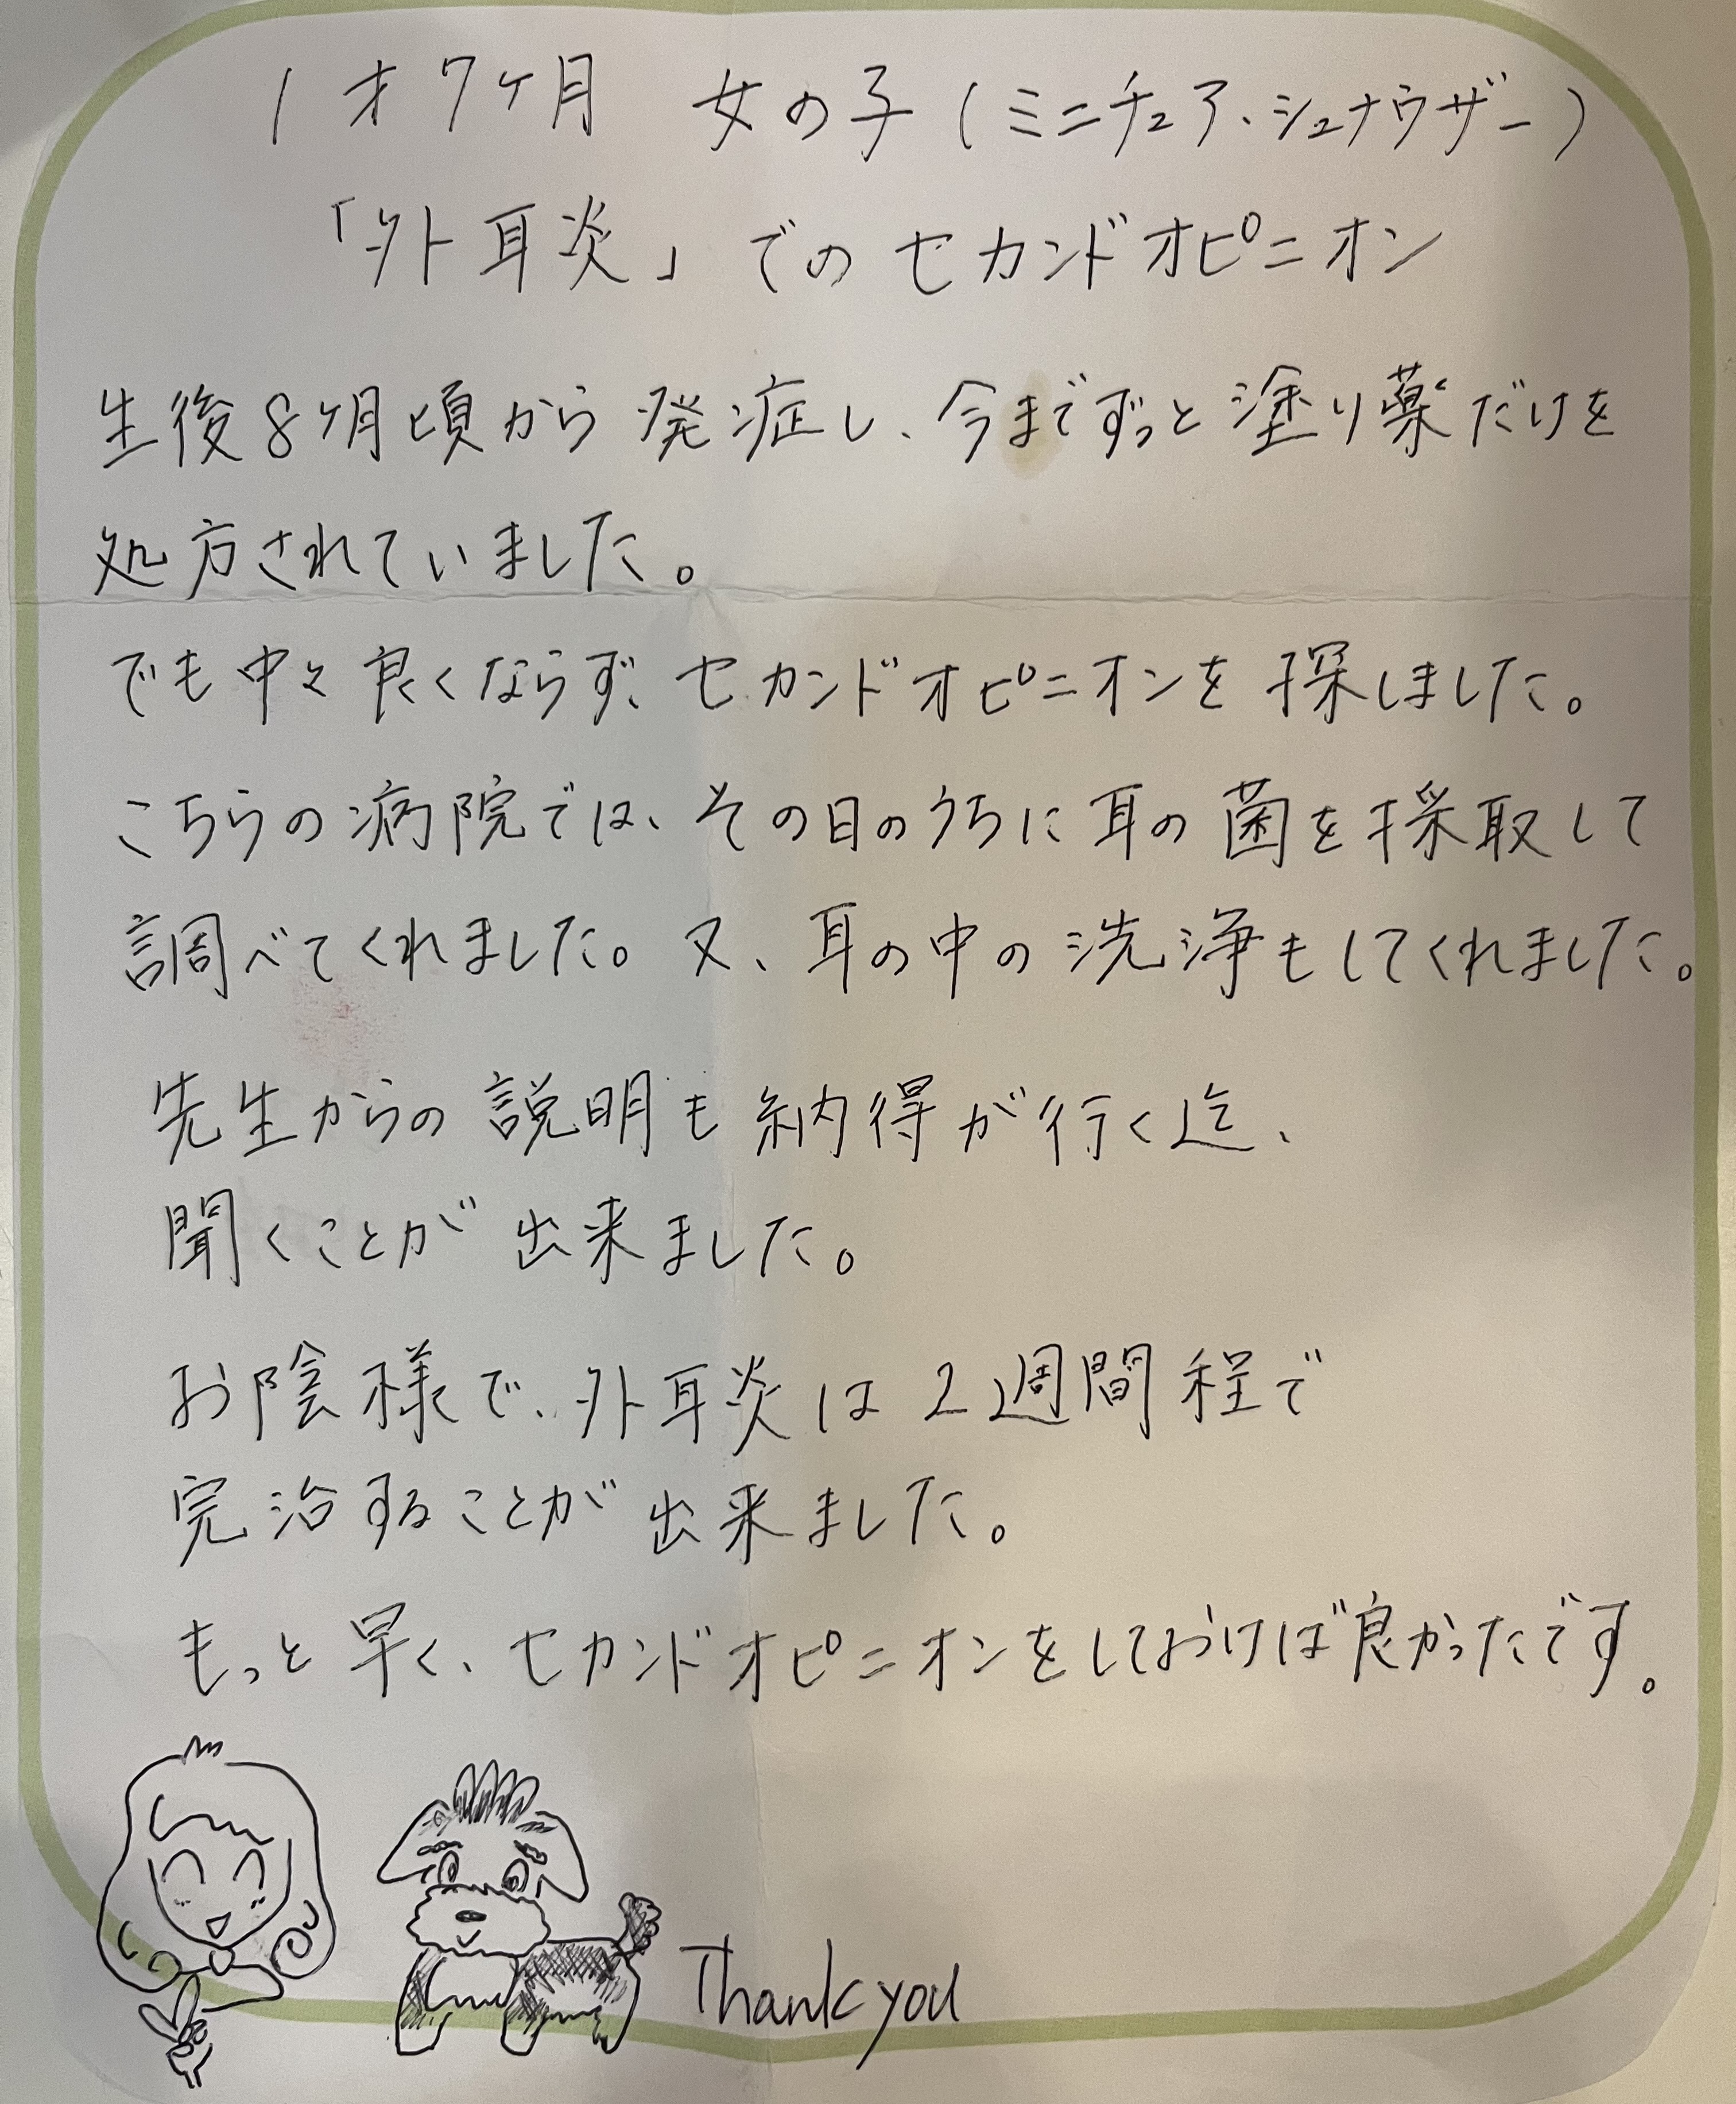 1才7ヶ月 女の子(ミニチュア・シュナウザー)
「外耳炎」でのセカンドオピニオン
生後8ヶ月頃から発症し、今までずっと塗り薬だけを
処方されていました。
でも中々良くならず、セカンドオピニオンを探しました。
こちらの病院では、その日のうちに耳の菌を採取して
調べてくれました。又、耳の中の洗浄もしてくれました。
先生からの説明も納得が行く迄、
聞くことが出来ました。
お陰様で、外耳炎は2週間程で
完治することが出来ました。
もっと早く、セカンドオピニオンをしておけば良かったです。
Thank you